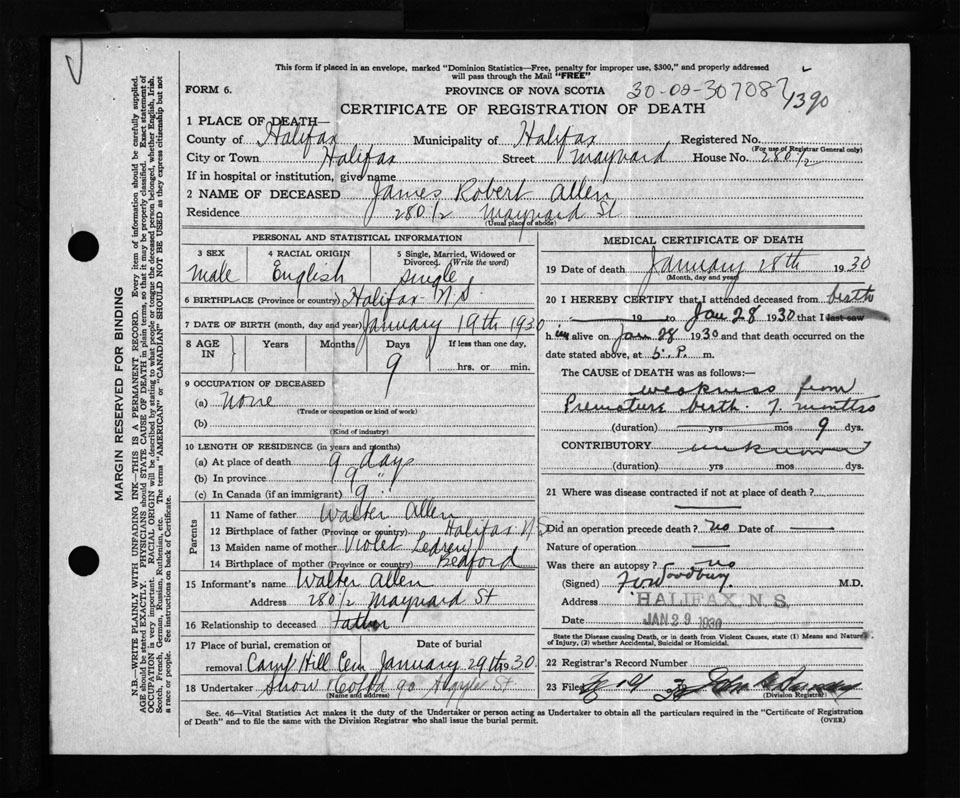 This form if placed in an envelope, marked "Dominion Statistics—Free, penalty for improper use, $300," and properly addressed
will pass through the Mail "FREE"
FORM 6.
PROVINCE OF NOVA SCOTIA 30-02-307087
1390
CERTIFICATE OF REGISTRATION OF DEATH
1 PLACE OF DEATH—
County of Halifax Municipality of Halifax Registered No.
(For use of Registrar General only)
City or Town Halifax Street Maynard House No. 280 1/2
If in hospital or institution, give name
2 NAME OF DECEASED James Robert Allen
Residence 280 1/2 Maynard St
(Usual place of abode)
PERSONAL AND STATISTICAL INFORMATION
3 SEX 4 RACIAL ORIGIN 5 Single, Married, Widowed or
Divorced. (Write the word)
Male English single
6 BIRTHPLACE (Province or country) Halifax N.S.
7 DATE OF BIRTH (month, day and year) January 19th 1930
8 AGE IN Years Months Days If less than one day,
9 hrs. or min.
9 OCCUPATION OF DECEASED
(a) None
(Trade or occupation or kind of work)
(b)
(Kind of industry)
10 LENGTH OF RESIDENCE (in years and months)
(a) At place of death 9 days
(b) In province 9 "
(c) In Canada (if an immigrant) 9
Parents
11 Name of father Walter Allen
12 Birthplace of father (Province or country) Halifax N.S
13 Maiden name of mother Violet
14 Birthplace of mother (Province or country) Bedford
15 Informant's name Walter Allen
Address 280 1/2 Maynard St
16 Relationship to deceased Father
17 Place of burial, cremation or Date of burial
removal Camp Hill Cem January 29th 1930.
18 Undertaker Snow & Co Ltd 90 Argyle St
(Name and address)
MEDICAL CERTIFICATE OF DEATH
19 Date of death January 28th 1930
(Month, day and year)
20 I HEREBY CERTIFY that I attended deceased from birth
19 to Jan 28 1930 that I last saw
him alive on Jan 28 1930 and that death occurred on the
date stated above, at 5. P. m.
The CAUSE of DEATH was as follows:—
weakness from
Premature birth. 7. months
(duration) yrs mos 9 dys.
CONTRIBUTORY unknown
(duration) yrs mos dys.
21 Where was disease contracted if not at place of death?
Did an operation precede death? no Date of
Nature of operation
Was there an autopsy? no
(Signed) Woodbury. M.D.
Address HALIFAX, N. S.
Date JAN 29 1930
State the Disease causing Death, or in death from Violent Causes, state (1) Means and Nature
of Injury, (2) whether Accidental, Suicidal or Homicidal.
22 Registrar's Record Number
23 Filed
(Division Registrar)
Sec. 46—Vital Statistics Act makes it the duty of the Undertaker or person acting as Undertaker to obtain all the particulars required in the "Certificate of Registration
of Death" and to file the same with the Division Registrar who shall issue the burial permit. (OVER)
MARGIN RESERVED FOR BINDING
N.B.—WRITE PLAINLY WITH UNFADING INK—THIS IS A PERMANENT RECORD. Every item of information should be carefully supplied.
AGE should be stated EXACTLY. PHYSICIANS should STATE CAUSE OF DEATH in plain terms, so that it may be properly classified. Exact statement of
OCCUPATION is very important. RACIAL ORIGIN will be described by stating to what people or tongue the deceased person belonged, whether English, Irish,
Scotch, French, German, Russian, Ruthenian, etc. The terms "AMERICAN" or "CANADIAN" SHOULD NOT BE USED as they express citizenship but not
a race or people. See instructions on back of Certificate.